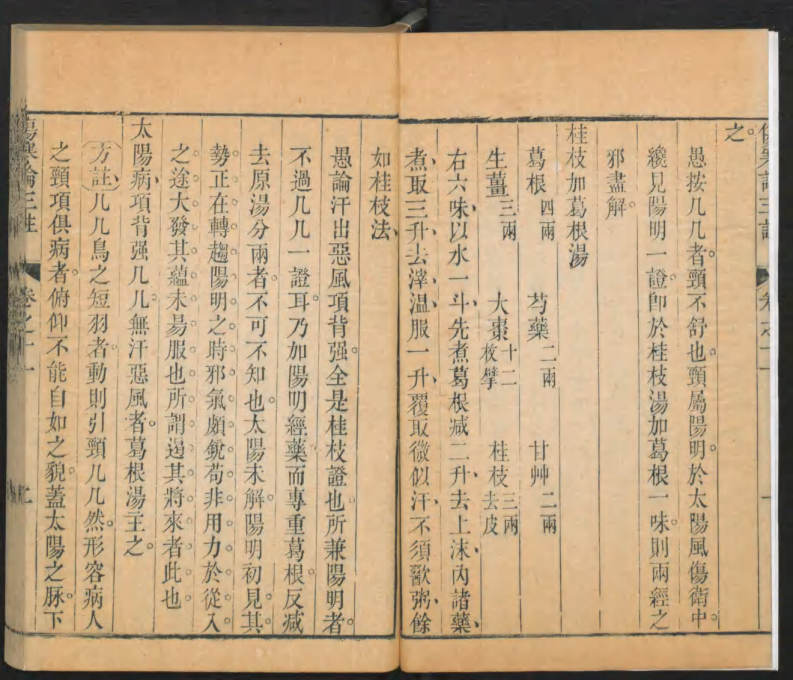 之。
愚按几几者頸不舒也。頸屬陽明。於太陽風傷衛中。
纔見陽明一證。卽於桂枝湯加葛根一味。則兩經之
邪盡解。
桂枝加葛根湯
葛根四兩 芍藥二兩 甘艸二兩
生薑三兩 大棗十二枚擘 桂枝三兩去皮
右六味、以水一斗、先煮葛根減二升、去上沫、內諸藥、
煮取三升、去滓、溫服一升、覆取微似汗、不須歠粥、餘
如桂枝法、
愚論汗出惡風項背强。全是桂枝證也。所兼陽明者。
不過几几一證耳。乃加陽明經藥而專重葛根。反減
去原湯分兩者。不可不知也。太陽未解。陽明初見。其
勢正在轉趨陽明之時。邪氣頗銳。苟非用力於從入
之途。大發其蘊。未易服也。所謂遏其將來者此也。
太陽病項背强几几無汗惡風者。葛根湯主之。
方註 几几鳥之短羽者。動則引頸几几然。形容病人
之頸項俱病者。俯仰不能自如之貌。蓋太陽之脉。下
傷寒論三註 卷之二